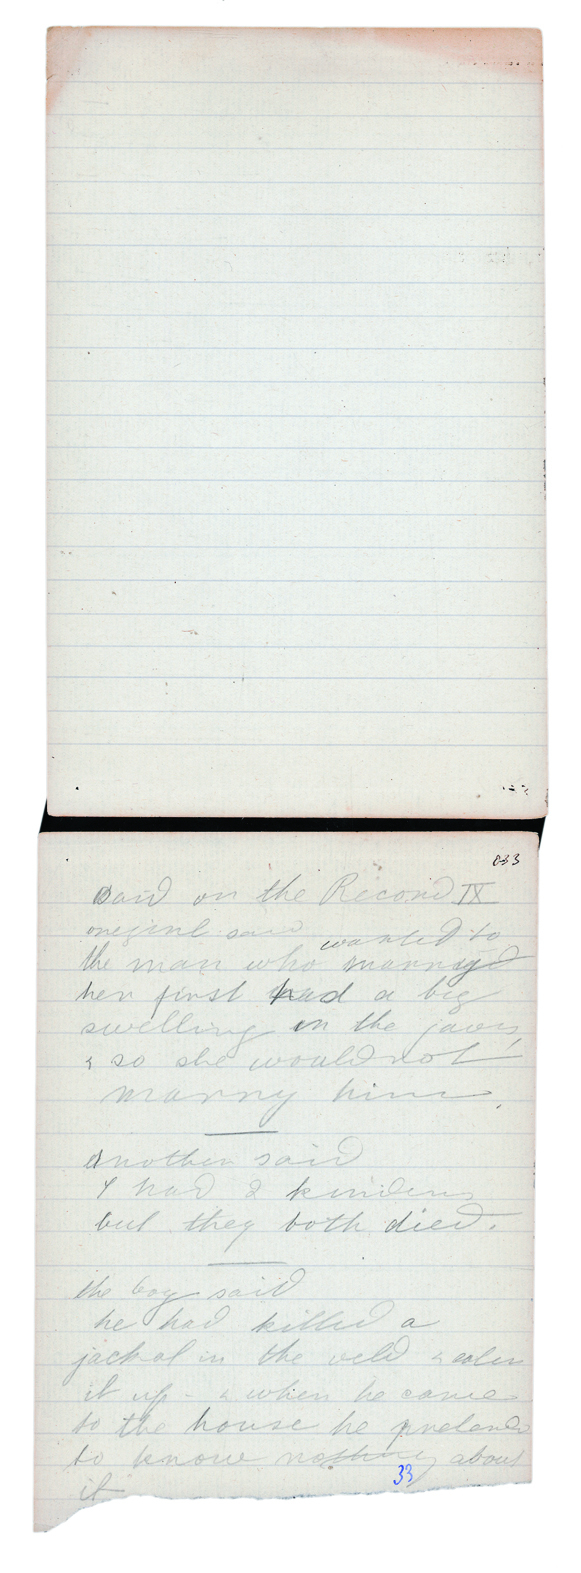 033
said on the Record IX
one girl said
wanted to
the man who marryd
her first had a big
swelling in the jaws
& so she would not
marry him.
another said
I had 2 kinders
but they both died.
the boy said
he had killed a
jackal in the veld & eaten
it up - & when he came
to the house he pretend
to know nothing about
it
33